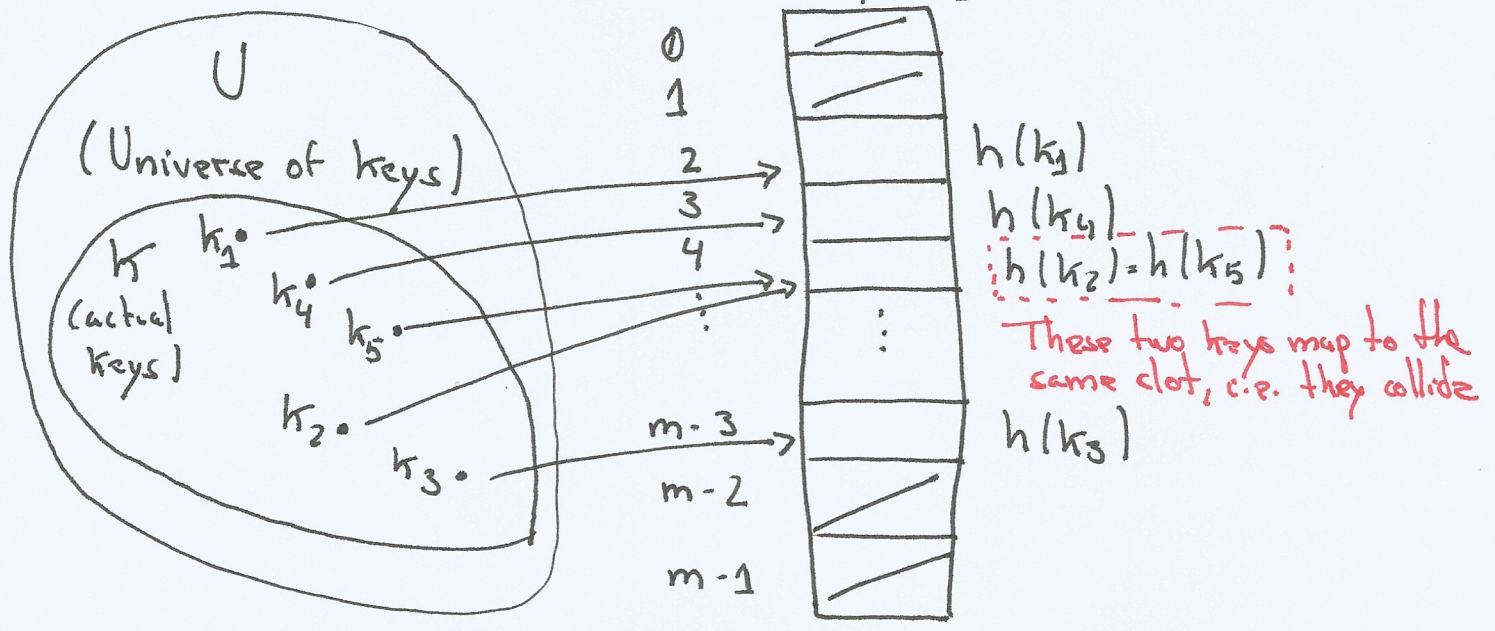 U
(Universe of keys)
K
(actual
keys)
k1
k4
k5
k2
k3
0
1
2
3
4
⋮
m-3
m-2
m-1
⋮
h(k1)
h(k4)
h(k2)=h(k5)
These two keys map to the
same slot, i.e. they collide
h(k3)